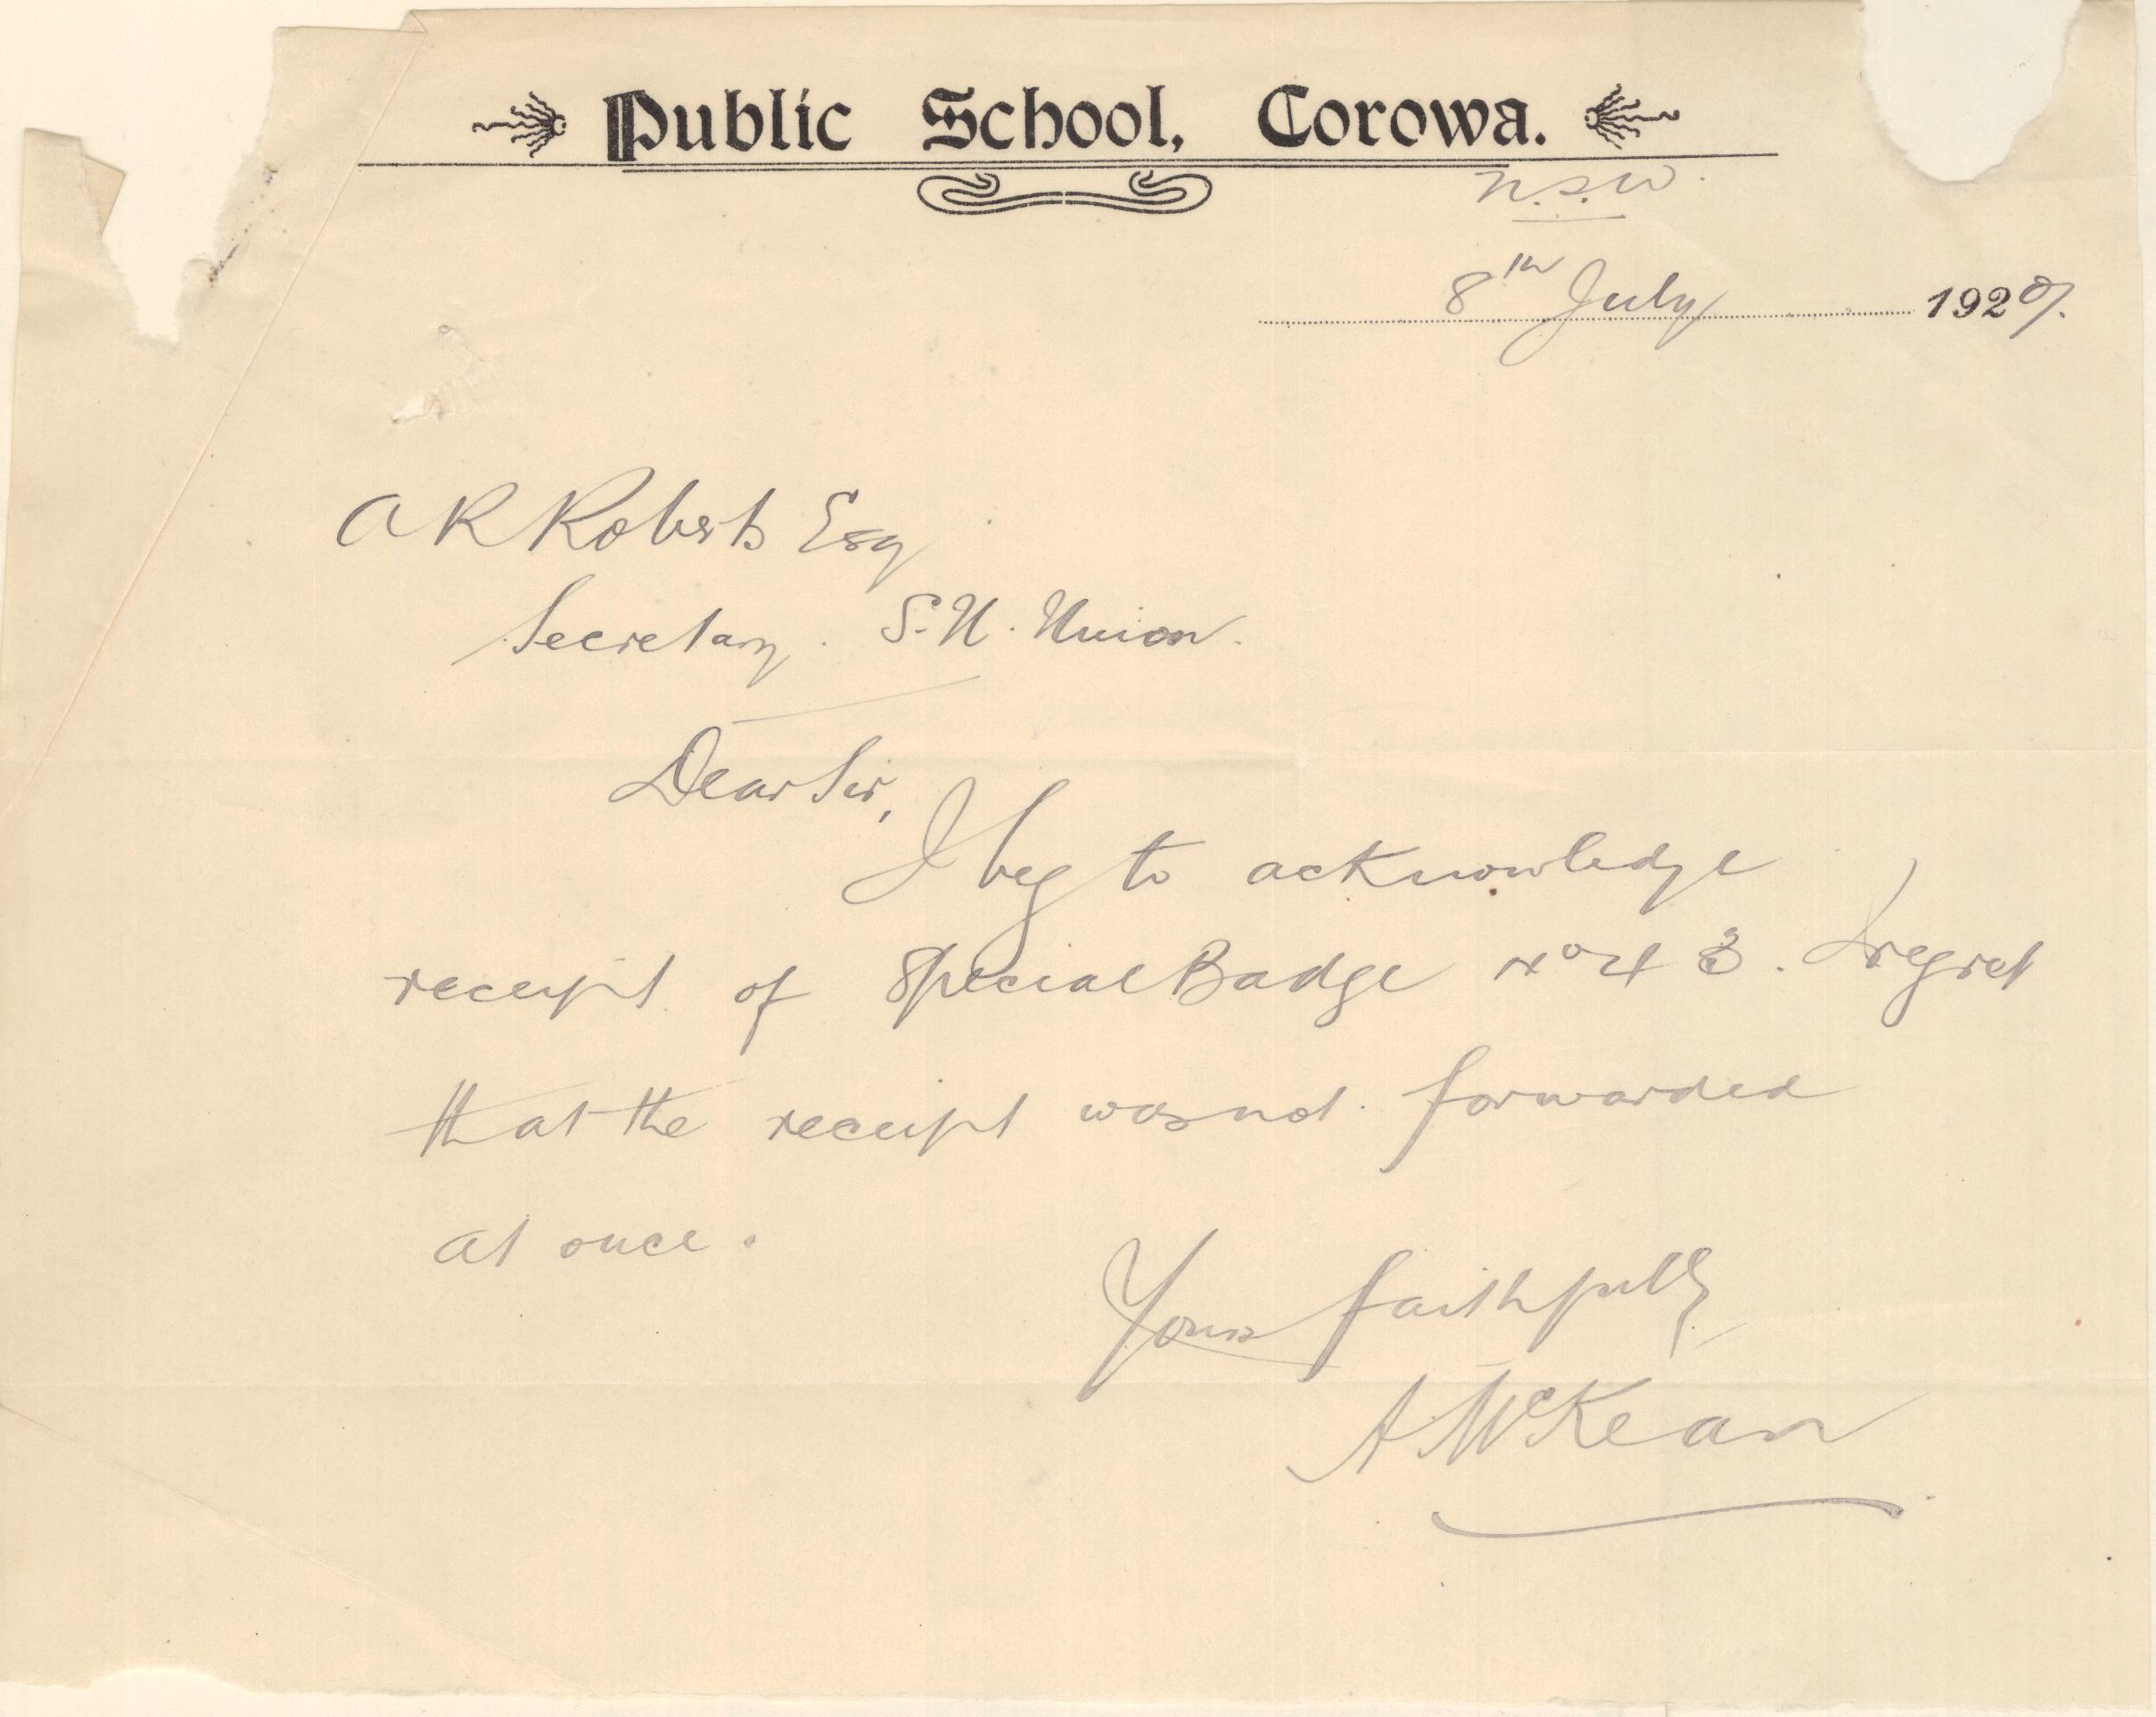 Public School, Corowa.
N.S.W.
8th July 1929.
A R Roberts Esq
Secretary. S. U. Union.
Dear Sir,
I beg to acknowledge
receipt of Special Badge No 43. I regret
that the receipt was not forwarded
at once.
Yours faithfully
A McKean